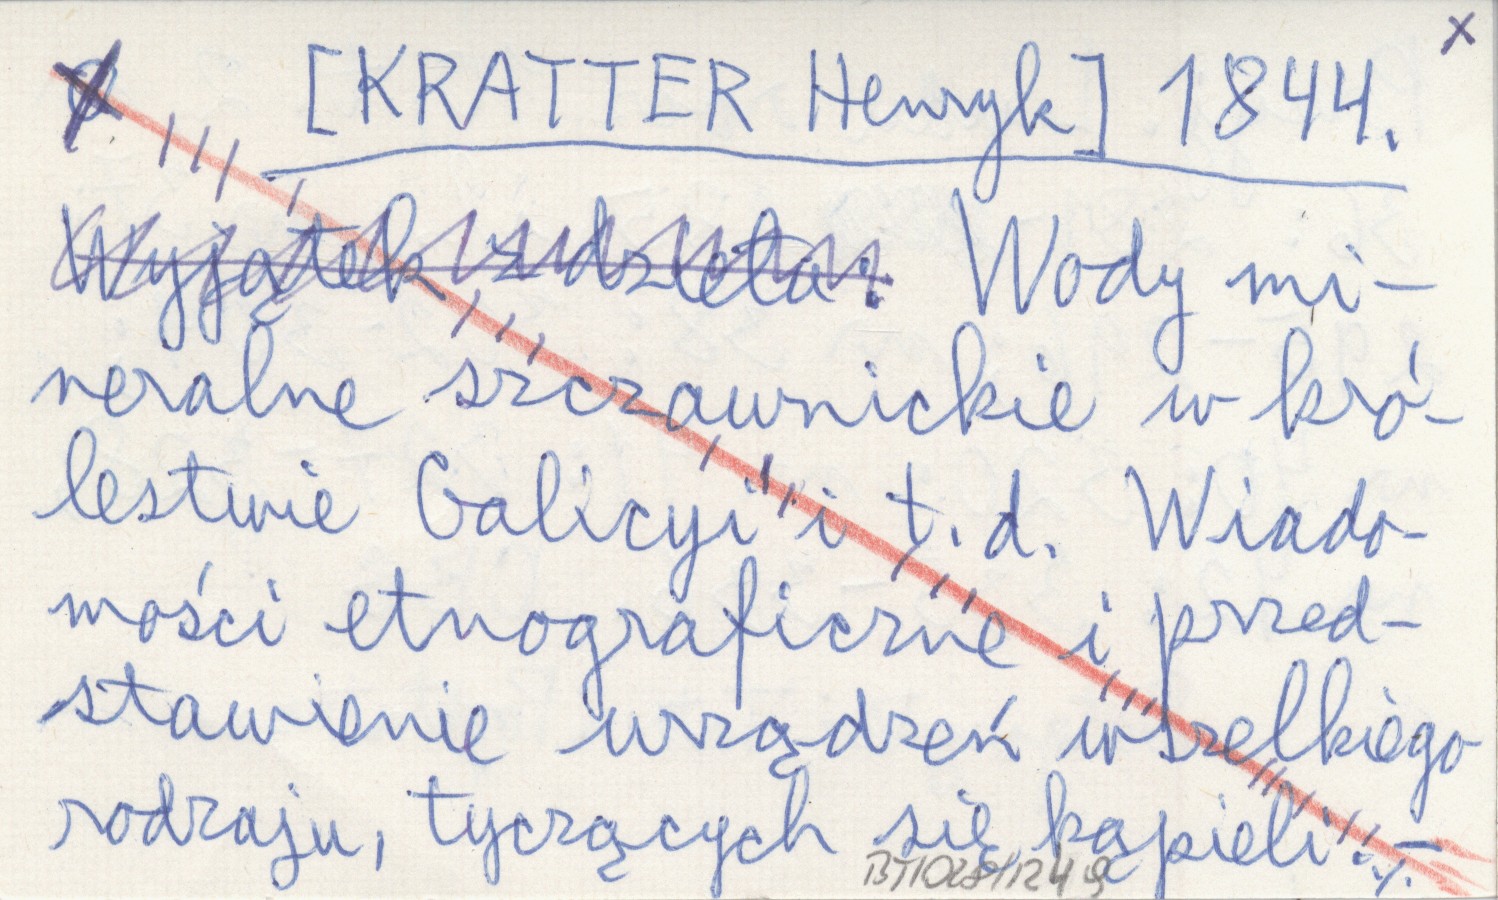 [KRATTER Henryk] 1844. x
Wyjątek z dzieła: Wody mi-
neralne szczawnickie w kró-
lestwie Galicyi i t. d. Wiado-
mości etnograficzne i przed-
stawienie urządzeń wszelkiego
rodzaju, tyczących się kąpieli. -